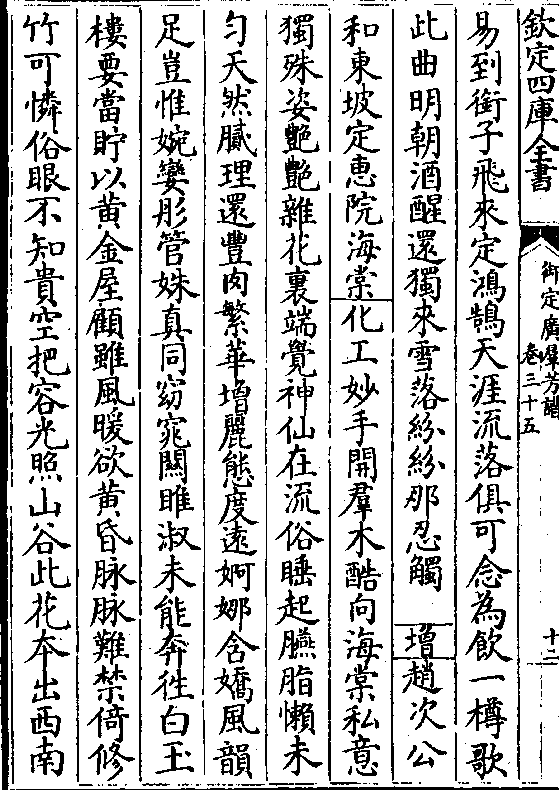 欽定四庫全書
御定廣羣芳譜
卷三十五
十二
易到銜子飛來定鴻鵠天涯流落俱可念為飲一樽歌
此曲明朝酒醒還獨來雪落紛紛那忍觸 增趙次公
和東坡定惠院海棠化工妙手開羣木酷向海棠私意
獨殊姿艷艷雜花裏端覺神仙在流俗睡起臙脂懶未
匀天然膩理還豐肉繁華增麗態度遠婀娜含嬌風韻
足豈惟婉孌彤管姝真同窈窕關雎淑未能奔往白玉
樓要當貯以黄金屋顧雖風暖欲黄昏脉脉難禁倚修
竹可憐俗眼不知貴空把容光照山谷此花本出西南